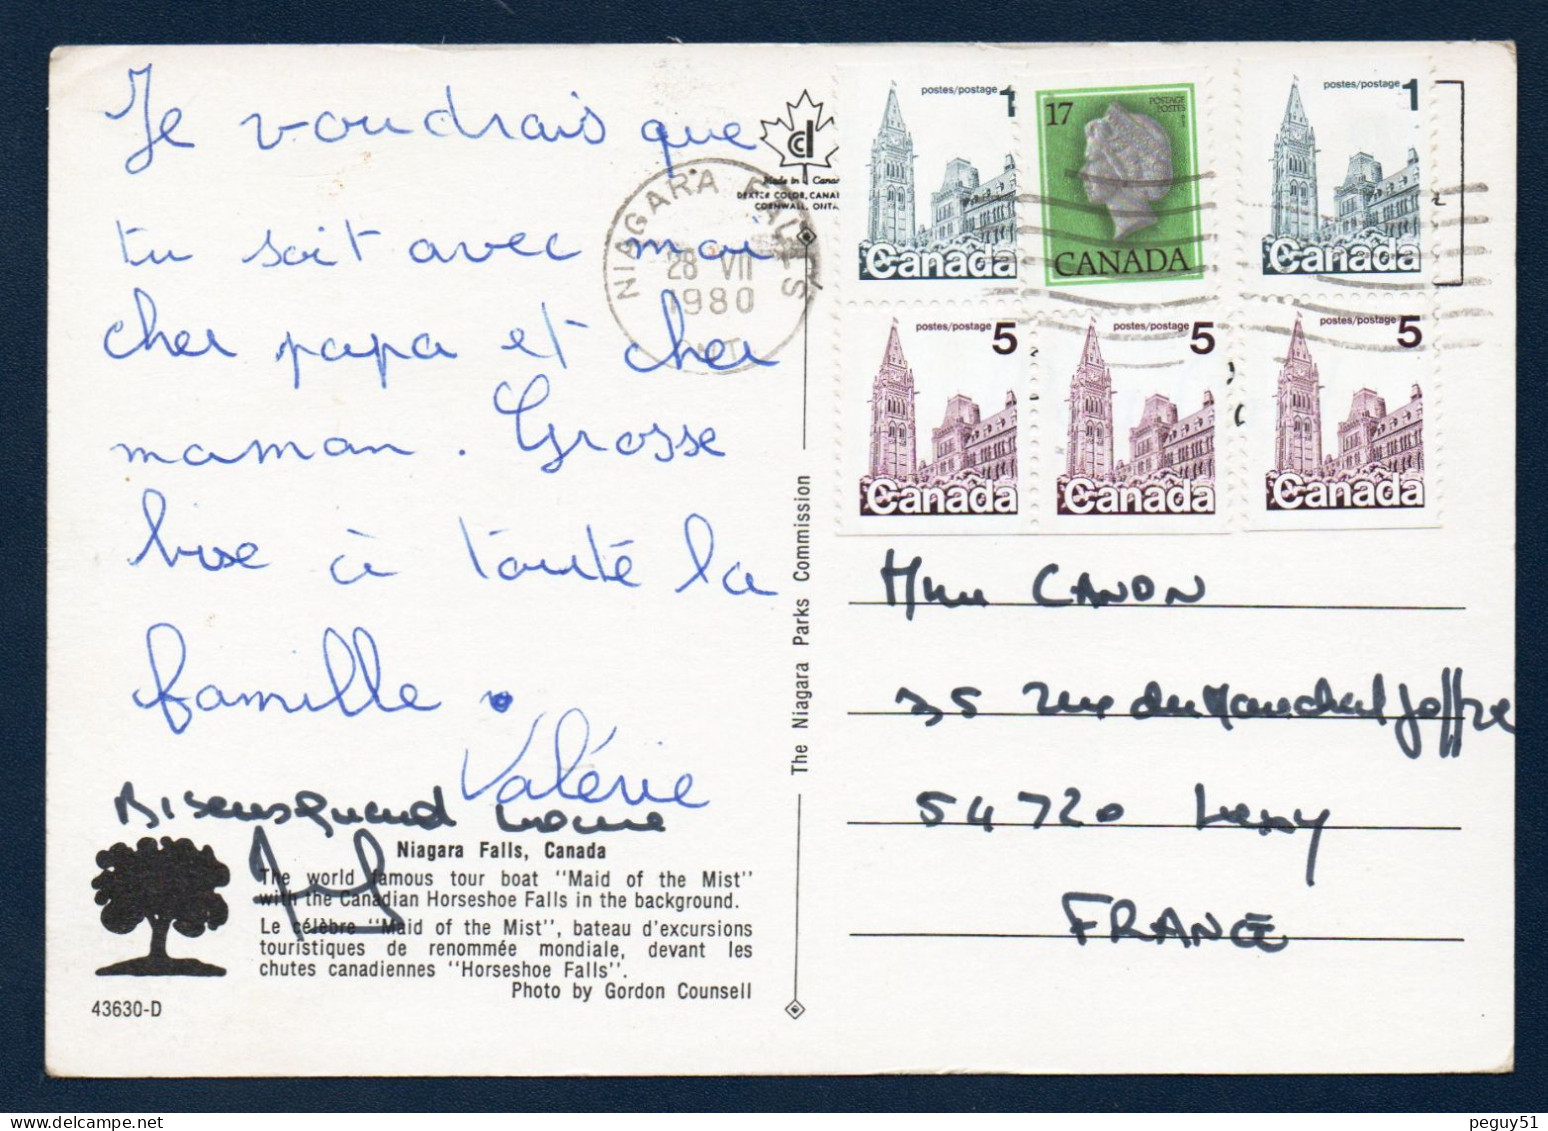 Je voudrais que
tu soit avec moi
cher papa et cher
maman. Grosse
bise à toute la
famille.
Valérie
Niagara Falls, Canada
The world famous tour boat "Maid of the Mist"
with the Canadian Horseshoe Falls in the background.
Le célèbre "Maid of the Mist", bateau d'excursions
touristiques de renommée mondiale, devant les
chutes canadiennes "Horseshoe Falls".
Photo by Gordon Counsell
43630-D
The Niagara Parks Commission
Made in Canada
DEXTER COLOR, CANA
CORNWALL, ONTA
NIAGARA FALLS
28 VII
1980
ONT
postes/postage 1
Canada
17 POSTAGE
POSTES
CANADA
postes/postage 1
Canada
postes/postage 5
Canada
postes/postage 5
Canada
postes/postage 5
Canada
Mme CANON
35 rue du Marechal Joffre
54720 Lexy
FRANCE
peguy51